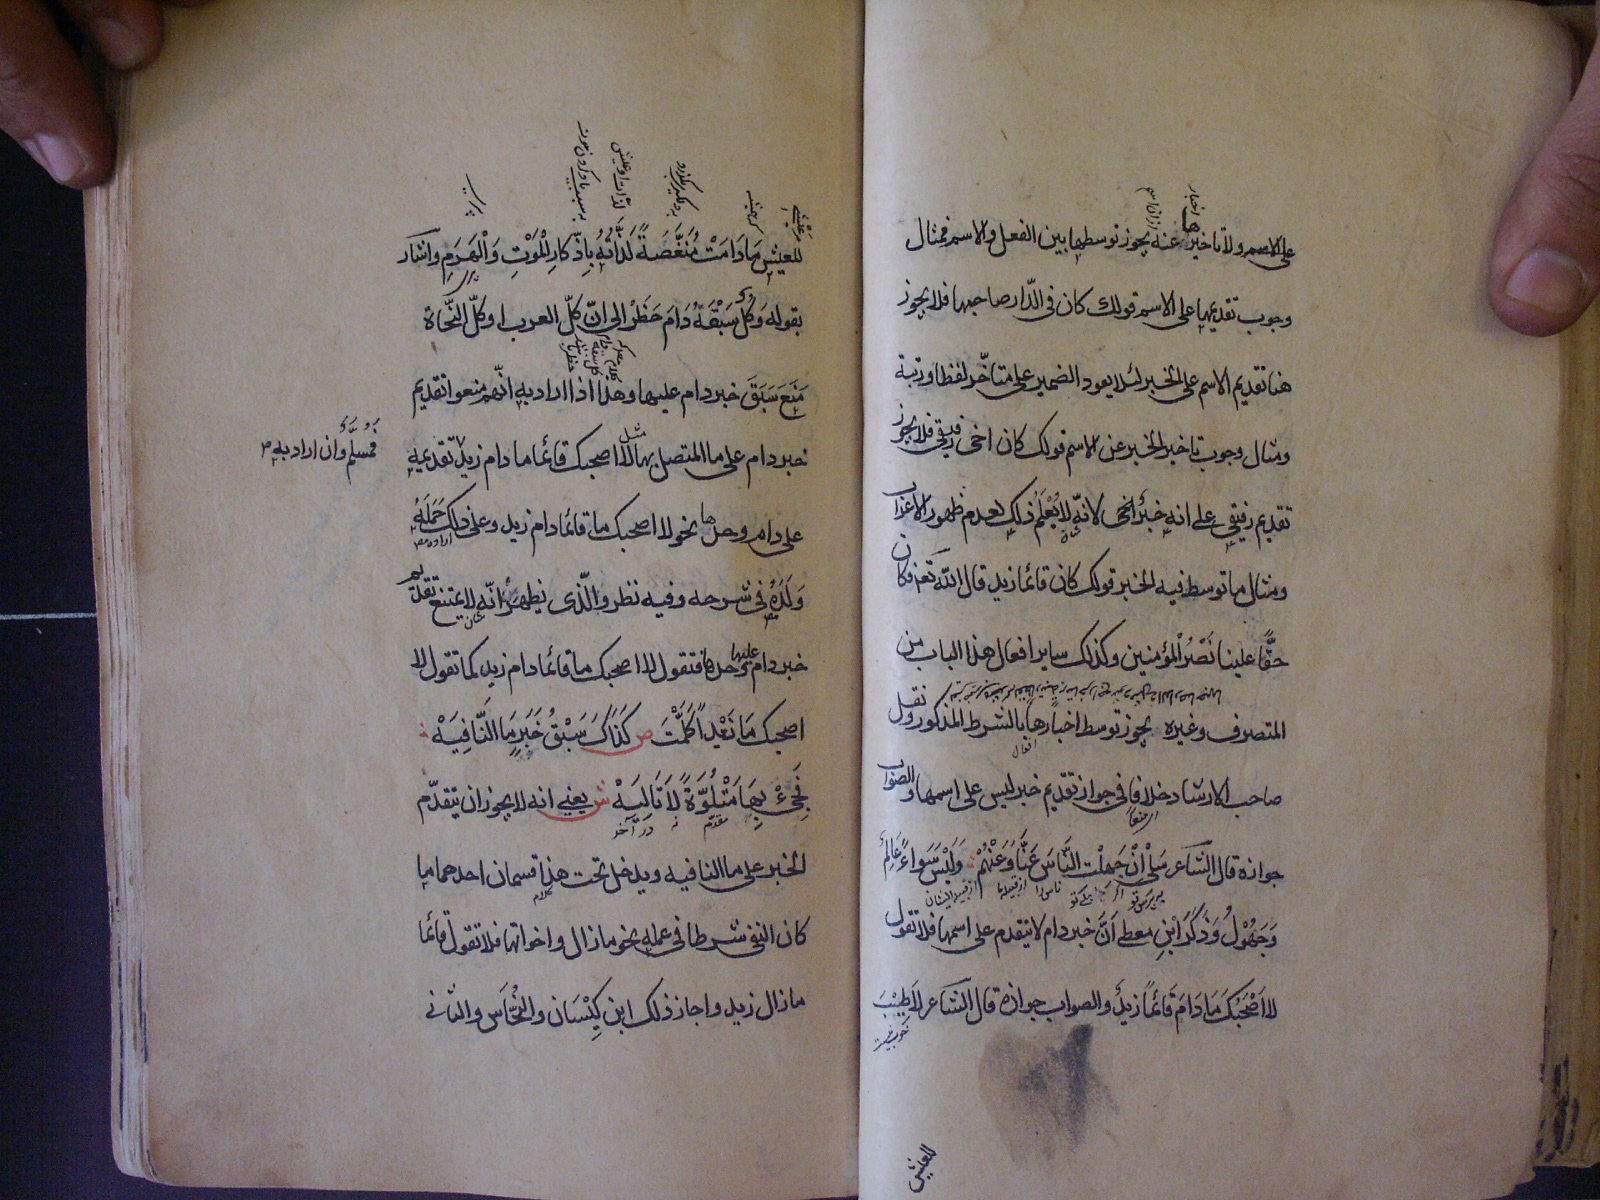 على الاسم ولا تاخيرها عنه يجوز توسطها بين الفعل والاسم فمثال
وجوب تقديمها على الاسم قولك كان فى الدّار صاحبها فلا يجوز
هنا تقديم الاسم على الخبر لئلا يعود الضمير على متأخّر لفظا ورتبة
ومثال وجوب تاخير الخبر عن الاسم قولك كان اخى رفيقى فلا يجوز
تقديم رفيقى على انه خبر لأنّه لا يُعْلَمُ ذلك لعدم ظهور الاعراب
ومثال ما توسط فيه الخبر قولك كان قائما زيد قال الله تع فكان
حقًّا علينا نَصْرُ الْمؤمنين وكذلك ساير افعال هذا الباب من
المتصرف وغيره يجوز توسط اخبارها بالشرط المذكور ونقل
صاحب الارشاد خلافا فى جواز تقديم خبر ليس على اسمها والصّواب
جوازه قال الشاعر سَلِىْ اِنْ جَهِلْتِ النّاسَ عَنّا وَعَنْهُمْ وَلَيْسَ سَواءً عَالِمٌ
وَجَهُوْلُ وَذَكَرَ ابْنِ معطى اَنَّ خبر دام لا يتقدم على اسمها فلا تقول
لا اَصْحَبُكَ مَا دَامَ قَائمًا زَيدٌ والصواب جوازه قال الشاعر لاَ طِيْبَ
للعيش
للعيشِ مَا دَامَتْ مُنَغَّصَةً لَذَّاتُهُ بِاِذِّكارِ الْمَوْتِ وَالْهَرَمِ واشار
بقوله وَكُلٌّ سَبْقَهُ دَامَ حَظَرْ الى انّ كلّ العرب او كلّ النّحاة
مَنَعَ سَبَقَ خبر دام عليها وهذا اذا اراد به انّهم منعوا تقديم
خبر دام على ما المتصل بها مثل لا اصحبك قائما ما دام زيد
فَمُسَلَّمٌ وان اراد به
تقديمه
على دام وحدها نحو لا اصحبك ما قائما دام زيد وعلى ذلك حَمَلَهُ
وَلَدُهُ فى شرحه وفيه نظر والّذى يظهر أنّه لا يمتنع تقديم
خبر دام عليها وحدها فتقول لا اصحبك ما قائما دام زيد كما تقول لا
اصحبك ما زَيْداً كَلَّمْتَ ص كَذَاكَ سَبْقُ خَبَرٍ مَا النَّافِيَهْ
فَجِئْ بِهَا مَتْلُوَّةً لاَ تَالِيَهْ ش يعنى انه لا يجوز ان يتقدّم
الخبر على ما النافيه ويدخل تحت هذا قسمان احدهما ما
كان النفى شرطا فى عمله نحو ما زال واخواتها فلا تقول قائما
ما زال زيد واجاز ذلك ابن كِيْسَان والنُّحّاس والثانى